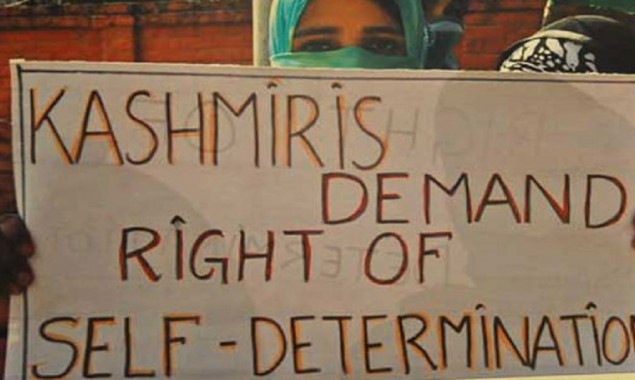 KASHMIRIS
DEMAND
RIGHT OF
SELF-DETERMINATIO